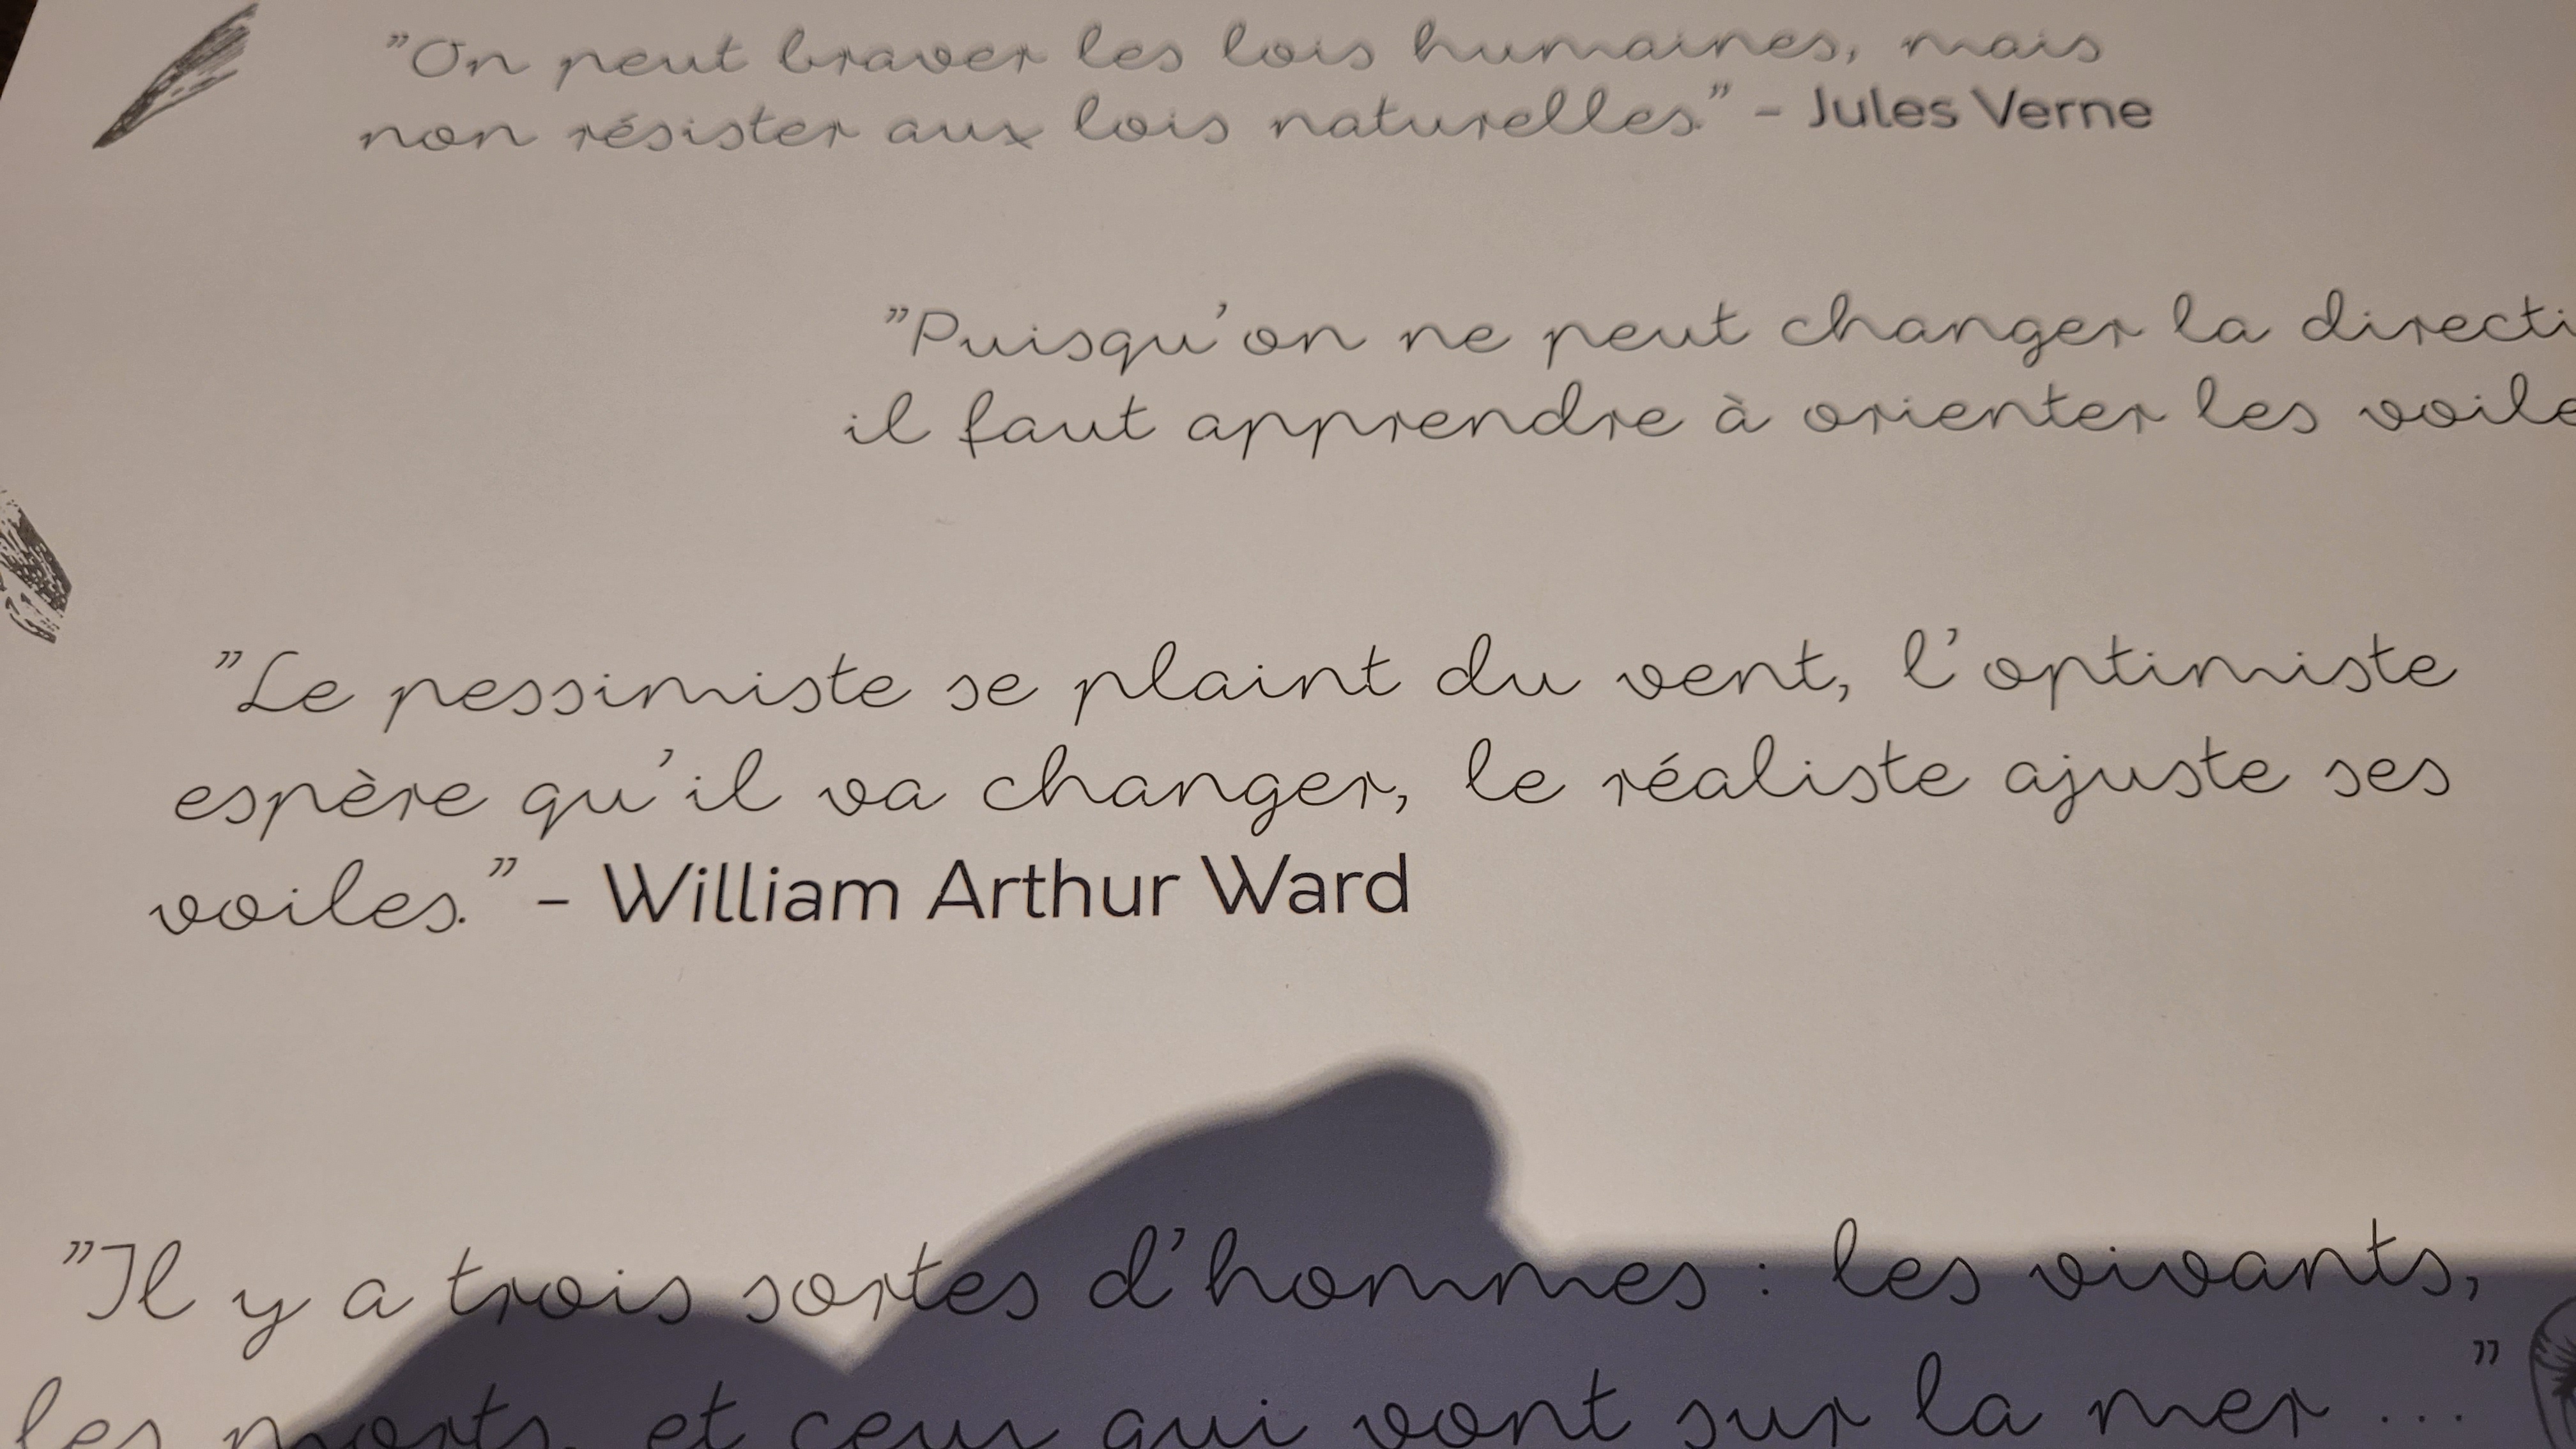 "On peut braver les lois humaines, mais
non résister aux lois naturelles." - Jules Verne
"Puisqu'on ne peut changer la directi
il faut apprendre à orienter les voile
"Le pessimiste se plaint du vent, l'optimiste
espère qu'il va changer, le réaliste ajuste ses
voiles." - William Arthur Ward
"Il y a trois sortes d'hommes : les vivants,
les morts, et ceux qui vont sur la mer ..."